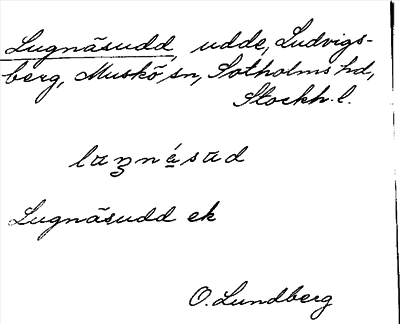 Lugnäsudd, udde, Ludvigs-
berg, Muskö sn, Sotholms hd,
Stockh. l.
Lugnäsudd ek
O. Lundberg